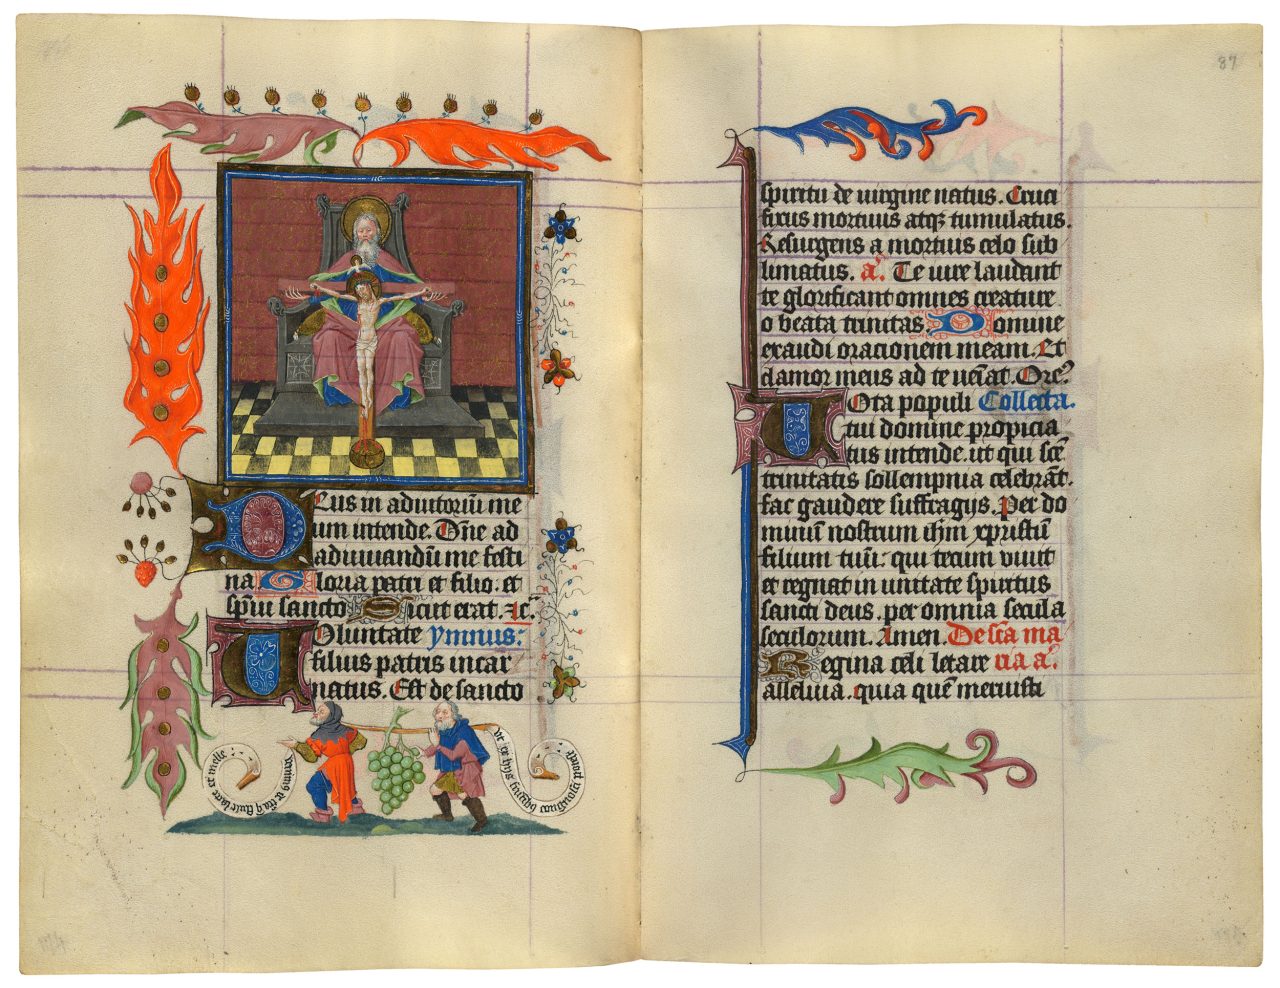 Eus in adiutoriū me
um intende. Dn̄e ad
adiuuandū me festi
na Gloria patri et filio. et
sp̄ui sancto Sicut erat. ⁊c̄.
Voluntate ymnus:
filius patris incar
natus. Est de sancto
lacte et melle
87
spiritu de uirgine natus. Cruci
fixus mortuus atqꝫ tumulatus.
Resurgens a mortuis celo sub
limatus. a̅. Te iure laudant
te glorificant omnes creature
o beata trinitas. Domine
exaudi orationem meam. Et
clamor meus ad te uēiat. Ore᷒
Vota populi Collecta.
tui domine propicia
tus intende. ut qui sc̄e
trinitatis sollempnia celebrāt.
fac gaudere suffragijs. Per do
minum nostrum ih̄m xpristū
filium tuū: qui tecum viuit
et regnat in unitate spiritus
sancti deus. per omnia secula
seculorum. Amen. De sc̄a ma
Regina celi letare ria a̅.
alleluia. quia quē meruisti